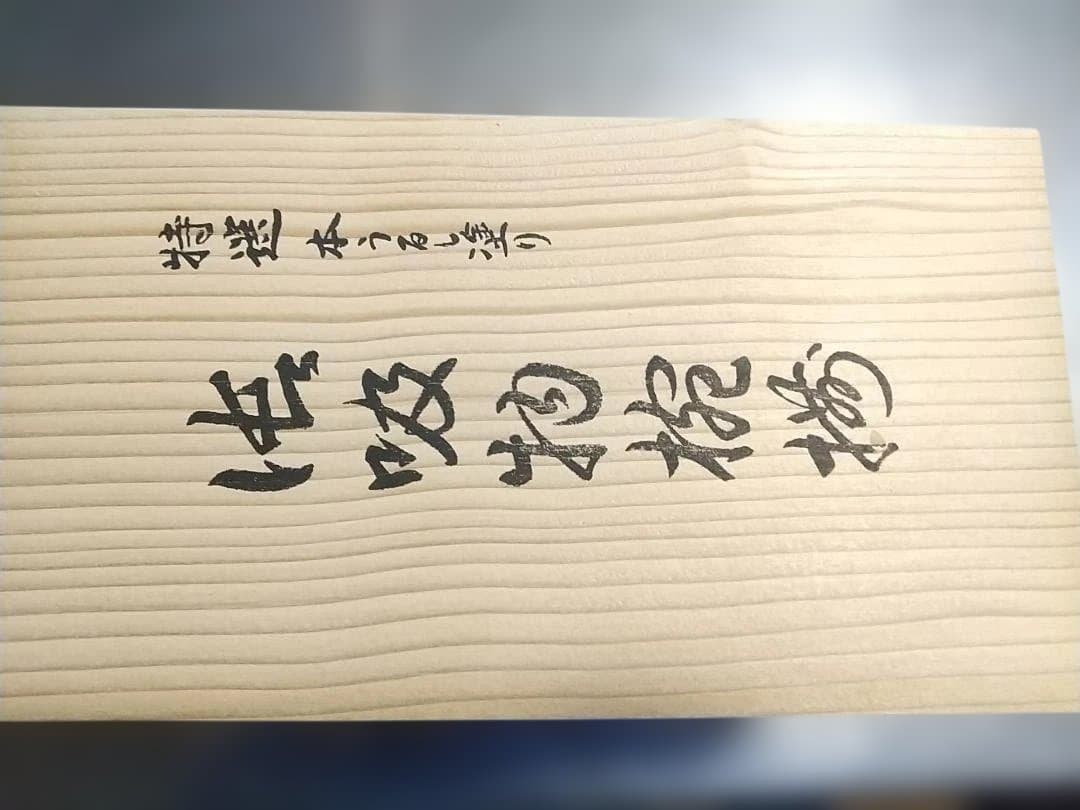 特選 本うるし塗り
吸物椀揃